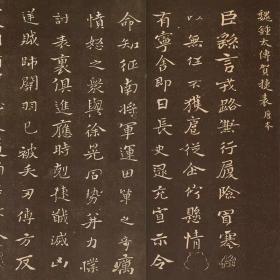 魏鍾太傅賀捷表唐本
臣繇言戎路兼行履險冒寒臣
以無任不獲扈從企佇懸情無
有寧舍即日長史逯充宣示令
命知征南將軍運田單之奇厲
憤怒之衆與徐晃同勢并力撲
討表裏俱進應時剋捷馘滅凶
逆賊帥關羽已被矢刃傅方反